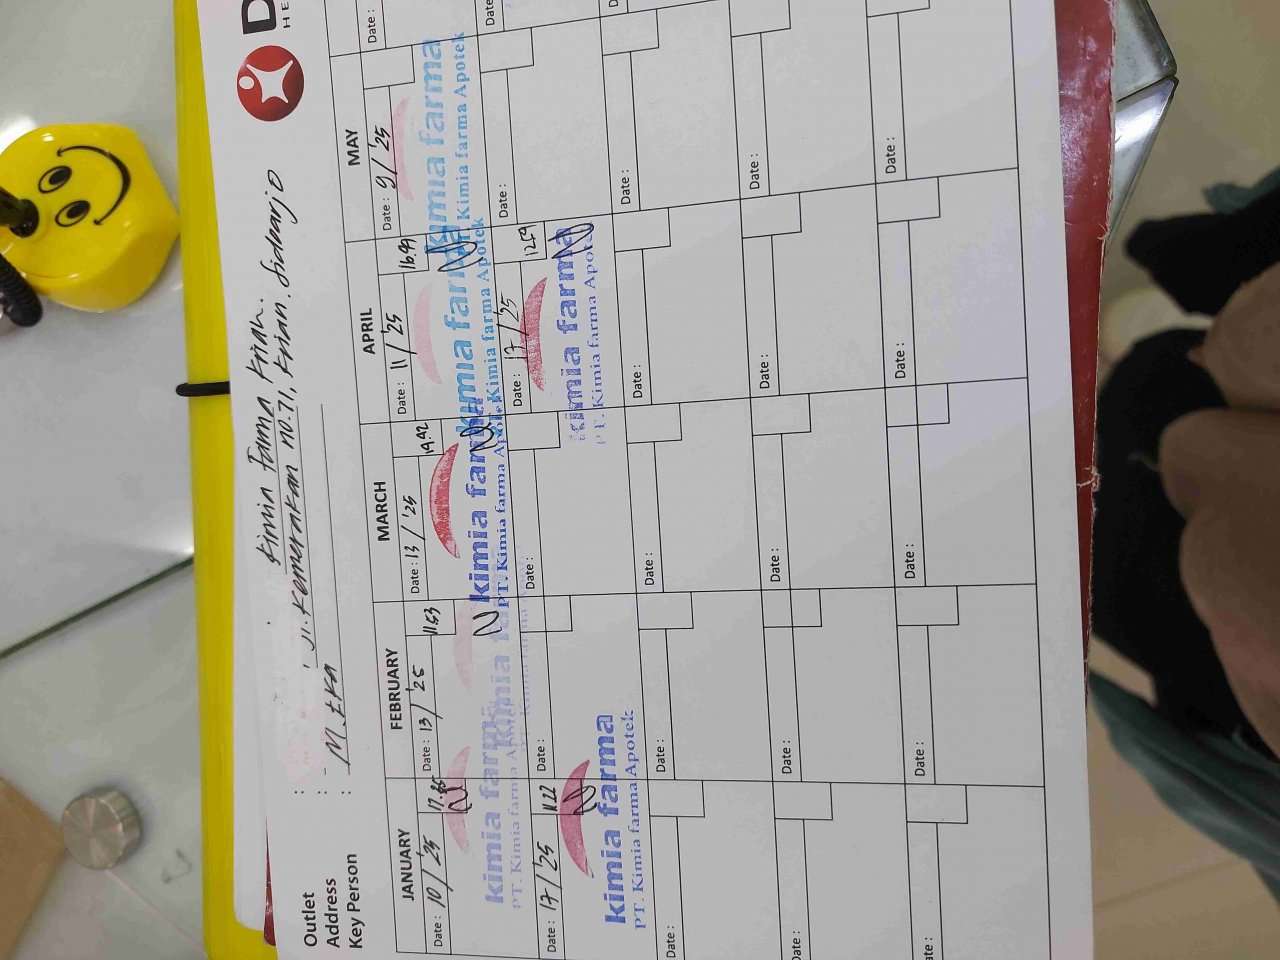 D
HE
Outlet : Kimia Farma Krian.
Address : Jl. Kemerakan no.71, Krian. Sidoarjo
Key Person : M. EKA
JANUARY FEBRUARY MARCH APRIL MAY
Date : 10 / '25 17.35 Date : 13 / '25 11.53 Date : 13 / '25 19.42 Date : 11 / '25 16.49 Date : 9 / '25 Date :
kimia farma kimia farma kimia farma kimia farma kimia farma
PT. Kimia farma Apotek PT. Kimia farma Apotek PT. Kimia farma Apotek Kimia farma Apotek
Date : 17 / '25 11.22 Date : Date : Date : 17 / '25 12.59 Date : Date :
kimia farma kimia farma
PT. Kimia farma Apotek PT. Kimia farma Apotek
Date : Date : Date : Date : Date :
Date : Date : Date : Date : Date :
Date : Date : Date : Date : Date :